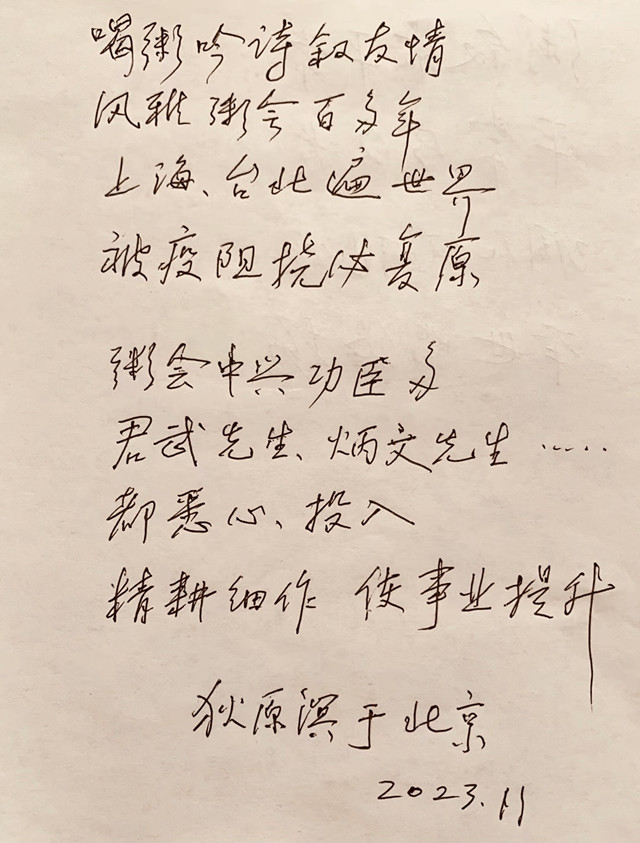 喝粥吟诗叙友情
风雅粥会百多年
上海、台北遍世界
被疫阻挠必复原
粥会中兴功臣多
君武先生、炳文先生……
都悉心、投入
精耕细作 使事业提升
狄原溟于北京
2023.11